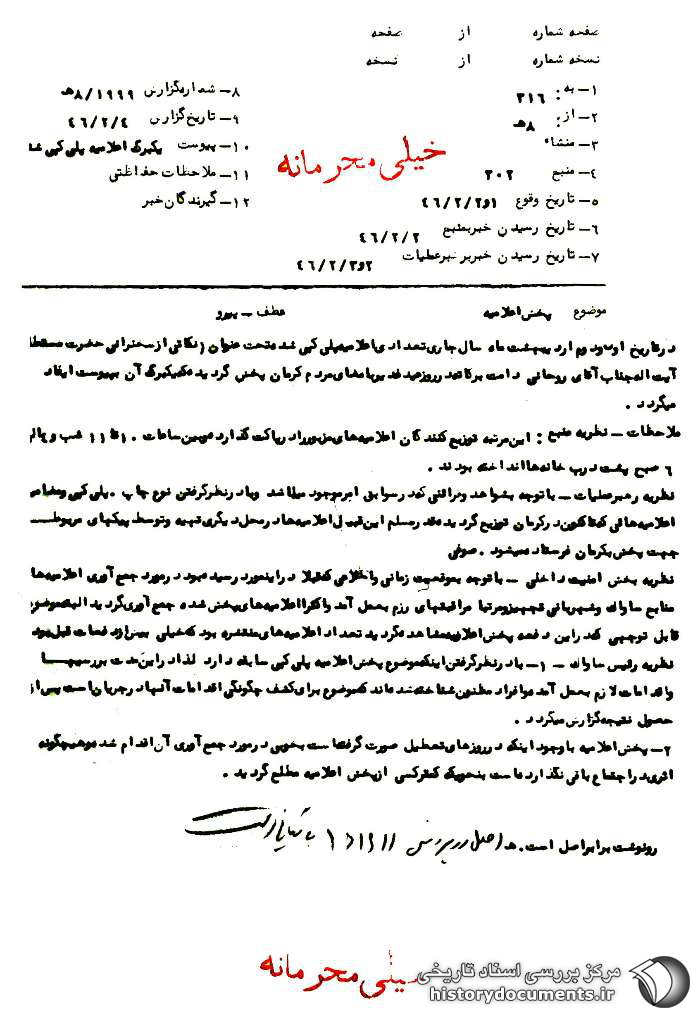 صفحه شماره از صفحه
نسخه شماره از نسخه
۱- به : ۳۱۶
۲- از : ۸هـ
۳- منشاء
۴- منبع ۳۰۲
۵- تاریخ وقوع ۱و۴۶/۲/۲
۶- تاریخ رسیدن خبر بمنبع ۴۶/۲/۲
۷- تاریخ رسیدن خبر برهبر عملیات ۲و۴۶/۲/۳
۸- شماره گزارش ۸/۱۹۹۹هـ
۹- تاریخ گزارش ۴۶/۲/۴
۱۰- پیوست یکبرگ اعلامیه پلی کپی
۱۱- ملاحظات حفاظتی
۱۲- گیرندگان خبر
خیلی محرمانه
موضوع پخش اعلامیه عطف - پیرو
در تاریخ اول و دوم اردیبهشت ماه سال جاری تعدادی اعلامیه پلی کپی شده تحت عنوان نکاتی از سخنرانی حضرت مستطاب
آیت اله جناب آقای روحانی دامت برکاته بین مردم کرمان پخش گردیده که یکبرگ آن به پیوست ایفاد
میگردد .
ملاحظات - نظریه منبع : این مرتبه توزیع کنندگان اعلامیه های مزبور را در پاکت گذارده و بین ساعات ۱۰ تا ۱۱ شب و یا
۶ صبح پشت درب خانه ها انداخته بودند .
نظریه رهبر عملیات - با توجه بشواهد و مدارکی که در سوابق امر موجود میباشد و با در نظر گرفتن نوع چاپ - پلی کپی
اعلامیه هائی که تاکنون در کرمان توزیع گردیده قدر مسلم این قبیل اعلامیه ها در محل دیگری تهیه و توسط پیکهای مربوطه
جهت پخش بکرمان فرستاده میشود . صوفی
نظریه بخش امنیت داخلی - با توجه بموقعیت زمانی و اطلاعی که قبلا در اینمورد رسیده بود در مورد جمع آوری اعلامیه ها
منابع ساواک و شهربانی تجهیز و مرتبا مراقبتهای لازم بعمل آمد و اکثرا اعلامیه های پخش شده جمع آوری گردید البته موضوع
قابل توجهی که در این دفعه پخش اعلامیه مشاهده گردید تعداد اعلامیه های منتشره بود که خیلی بیش از دفعات قبل بود
نظریه رئیس ساواک - ۱- با در نظر گرفتن اینکه موضوع پخش اعلامیه پلی کپی سابقه دارد لذا در این مدت بررسیها
و اقدامات لازم بعمل آمده و افراد مظنون شناخته شده اند که موضوع برای کشف چگونگی اقدامات آنها در جریان است پس از
حصول نتیجه گزارش میگردد .
۲- پخش اعلامیه با وجود اینکه در روزهای تعطیل صورت گرفته است بخوبی در مورد جمع آوری آن اقدام شده و هیچگونه
اثری در اجتماع باقی نگذارده است بنحویکه کمتر کسی از پخش اعلامیه مطلع گردید .
رونوشت برابر اصل است . اصل در پرونده
خیلی محرمانه
مرکز بررسی اسناد تاریخی
historydocuments.ir